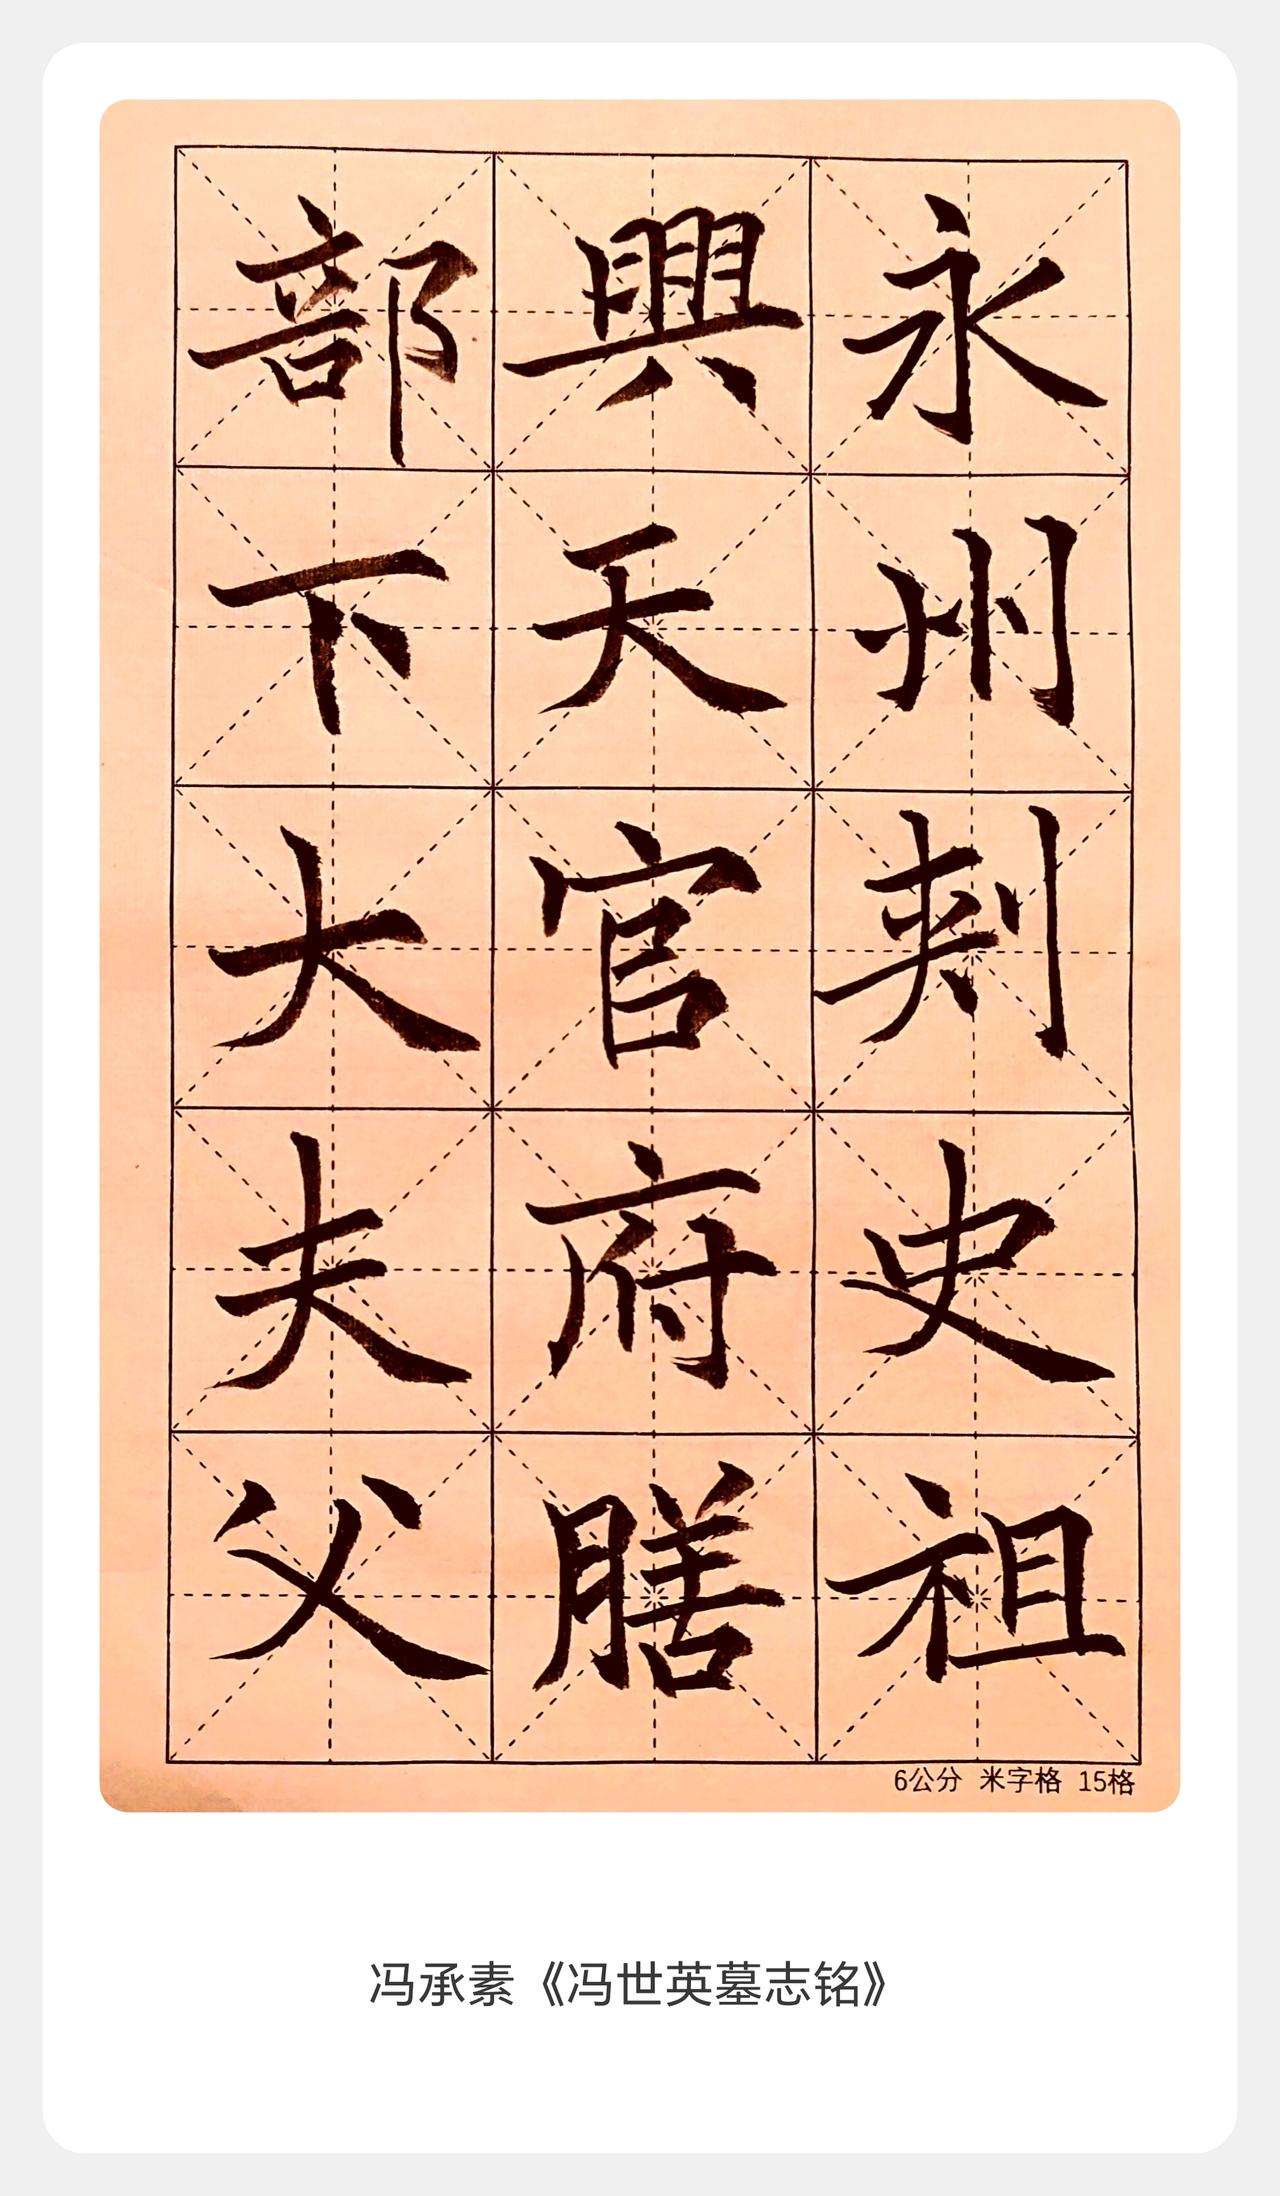 永州刾史祖
興天官府膳
部下大夫父
6公分 米字格 15格
冯承素《冯世英墓志铭》